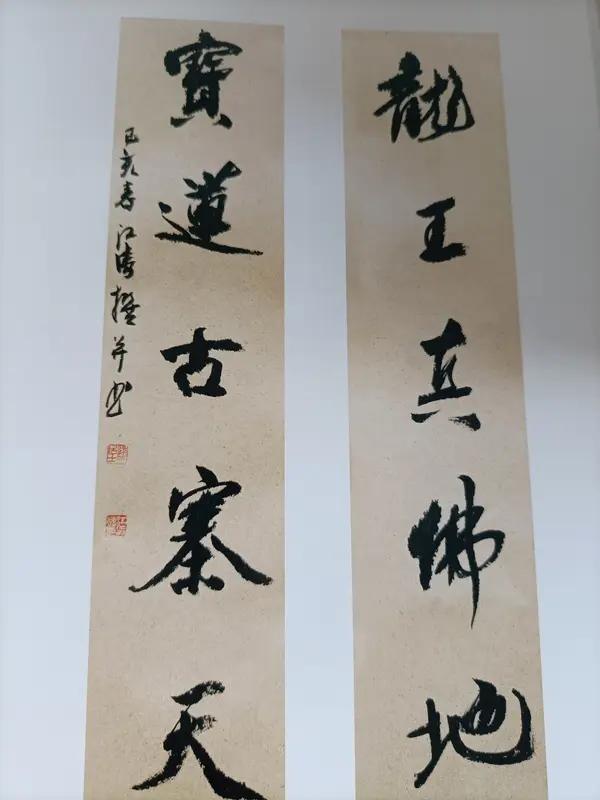 龍王真佛地
寶蓮古寨天
己亥春江濤撰并书